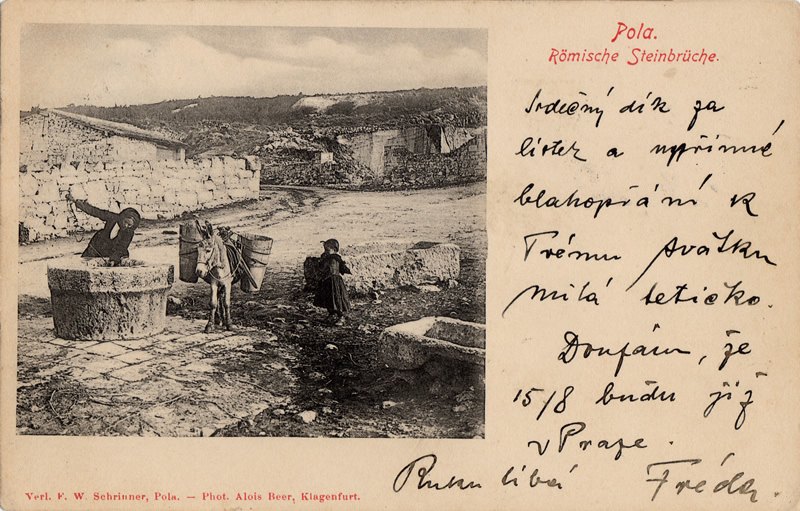 Pola.
Römische Steinbrüche.
Srdečný dík za
lístek a upřímné
blahopřání k
svátku
milá tetičko.
Doufám, že
15/8 budu již
v Praze.
Ruku líbá Fréda.
Verl. F. W. Schrinner, Pola. — Phot. Alois Beer, Klagenfurt.